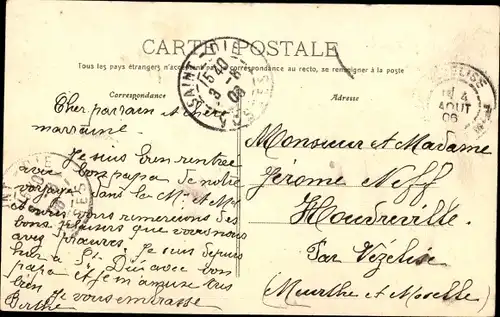 CARTE POSTALE
Tous les pays étrangers n'acceptent pas la correspondance au recto, se renseigner à la poste
Correspondance
Adresse
SAINT-DIÉ
15 40
3 -8
06
VOSGES
VEZELISE
4
AOUT
06
Cher parrain et chère
marraine
Je suis bien rentrée
avec bon papa de notre
voyage dans la Mthe et Mlle
et nous vous remercions des
bons plaisirs que vous nous
avez procurés. Je suis depuis
hier à St Dié avec bon
papa et je m'amuse très
bien
Je vous embrasse
Berthe
Monsieur et Madame
Jérome Neff
Houdreville
Par Vézelise
(Meurthe et Moselle)